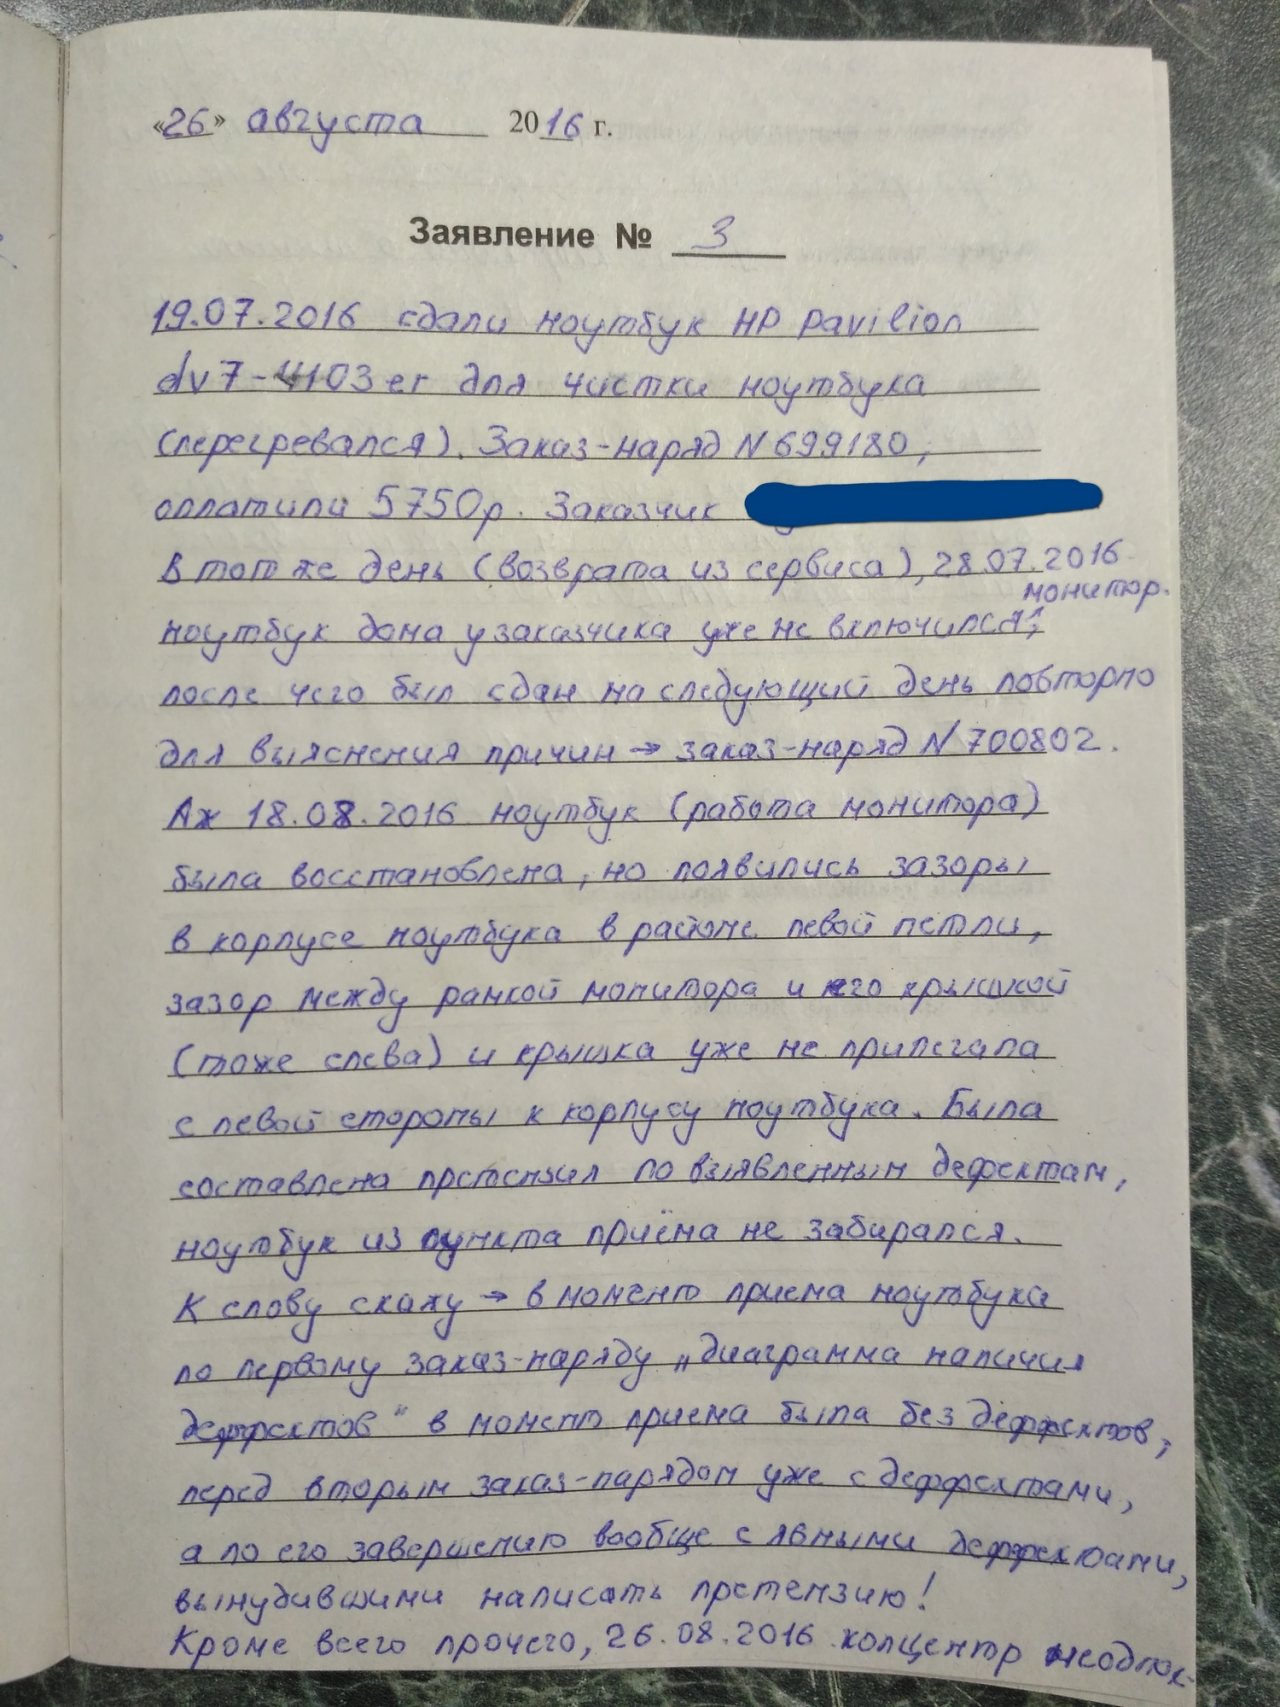 «26» августа 2016 г.
Заявление № 3
19.07.2016 сдали ноутбук HP pavilion
dv7-4103er для чистки ноутбука
(перегревался). Заказ-наряд N699180,
оплатили 5750р. Заказчик
В тот же день (возврата из сервиса), 28.07.2016
монитор.
ноутбук дома у заказчика уже не включился,
после чего был сдан на следующий день повторно
для выяснения причин → заказ-наряд N700802.
Аж 18.08.2016 ноутбук (работа монитора)
была восстановлена, но появились зазоры
в корпусе ноутбука в районе левой петли,
зазор между рамкой монитора и его крышкой
(тоже слева) и крышка уже не прилегала
с левой стороны к корпусу ноутбука. Была
составлена претензия по выявленным дефектам,
ноутбук из пункта приёма не забирался.
К слову скажу → в момент приема ноутбука
по первому заказ-наряду „диаграмма наличия
деффектов" в момент приема была без деффектов,
перед вторым заказ-нарядом уже с деффектами,
а по его завершению вообще с явными деффектами,
вынудившими написать претензию!
Кроме всего прочего, 26.08.2016 колцентр неоднок-